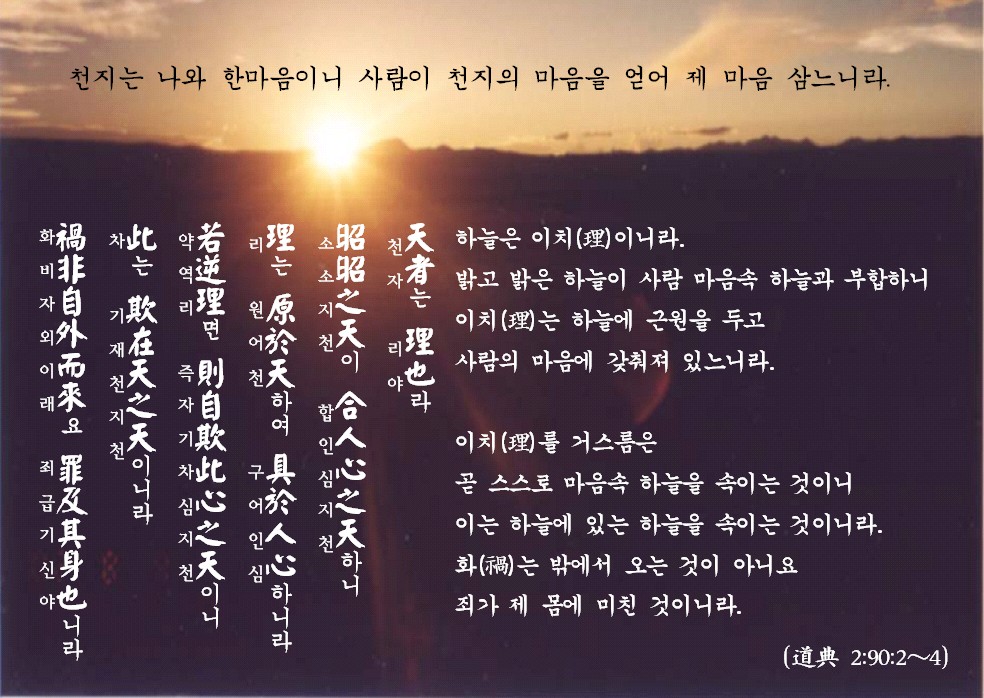 천지는 나와 한마음이니 사람이 천지의 마음을 얻어 제 마음 삼느니라.
天者는 理也라
천자 리야
昭昭之天이 合人心之天하니
소소지천 합인심지천
理는 原於天하여 具於人心하니라
리 원어천 구어인심
若逆理면 則自欺此心之天이니
약역리 즉자기차심지천
此는 欺在天之天이니라
차 기재천지천
禍非自外而來요 罪及其身也니라
화비자외이래 죄급기신야
하늘은 이치(理)이니라.
밝고 밝은 하늘이 사람 마음속 하늘과 부합하니
이치(理)는 하늘에 근원을 두고
사람의 마음에 갖춰져 있느니라.
이치(理)를 거스름은
곧 스스로 마음속 하늘을 속이는 것이니
이는 하늘에 있는 하늘을 속이는 것이니라.
화(禍)는 밖에서 오는 것이 아니요
죄가 제 몸에 미친 것이니라.
(道典 2:90:2~4)